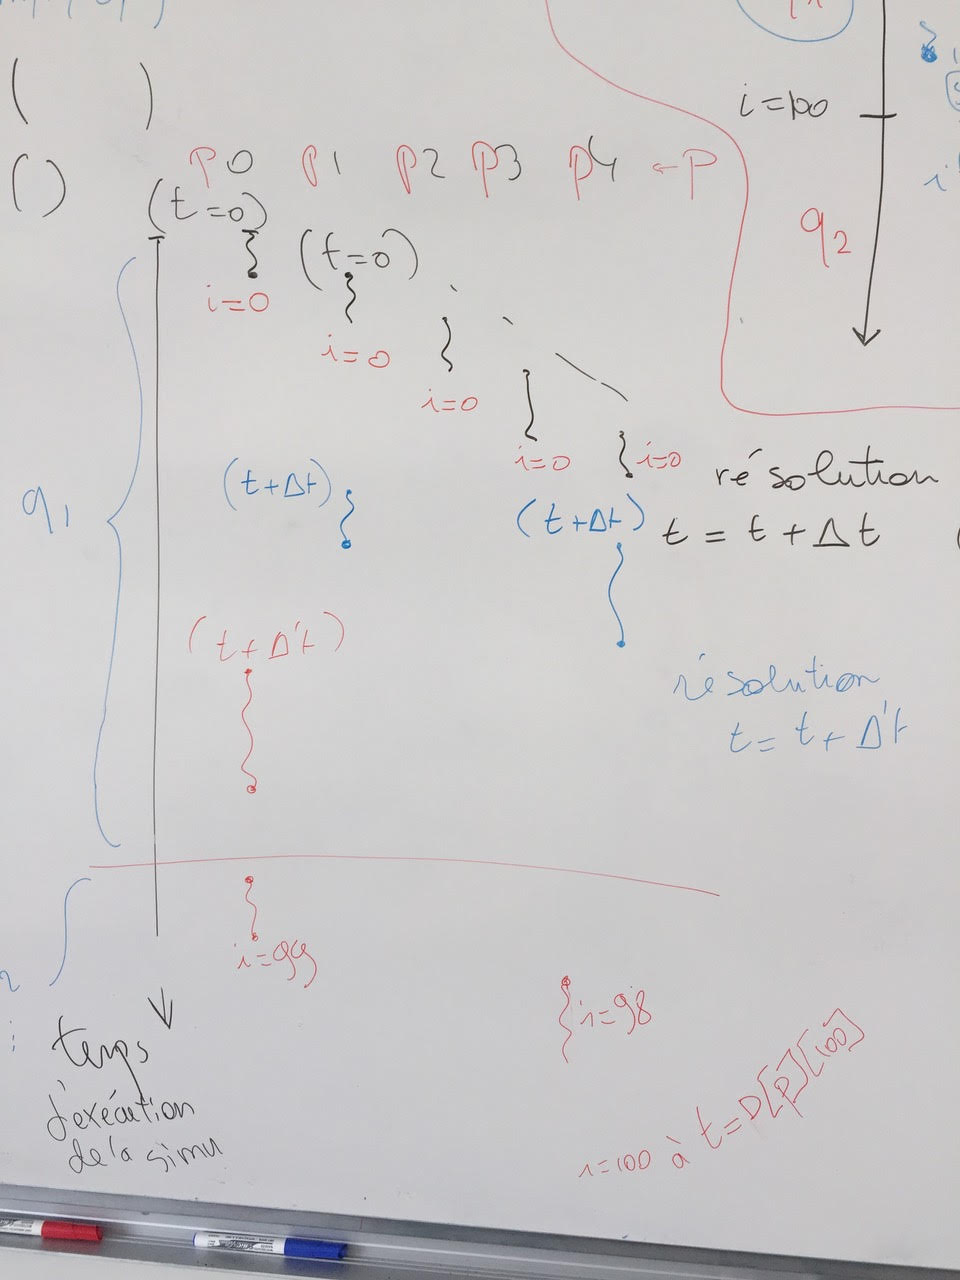 i=100
p0 p1 p2 p3 p4 ← p
(t=0)
(t=0)
q2
i=0
i=0
i=0
i=0
i=0
résolution
t = t + Δt
(t+Δt)
(t+Δt)
q1
(t+Δ't)
résolution
t = t + Δ't
i=99
i=98
temps
d'exécution
de la simu
i=100 à t=D[p][100]